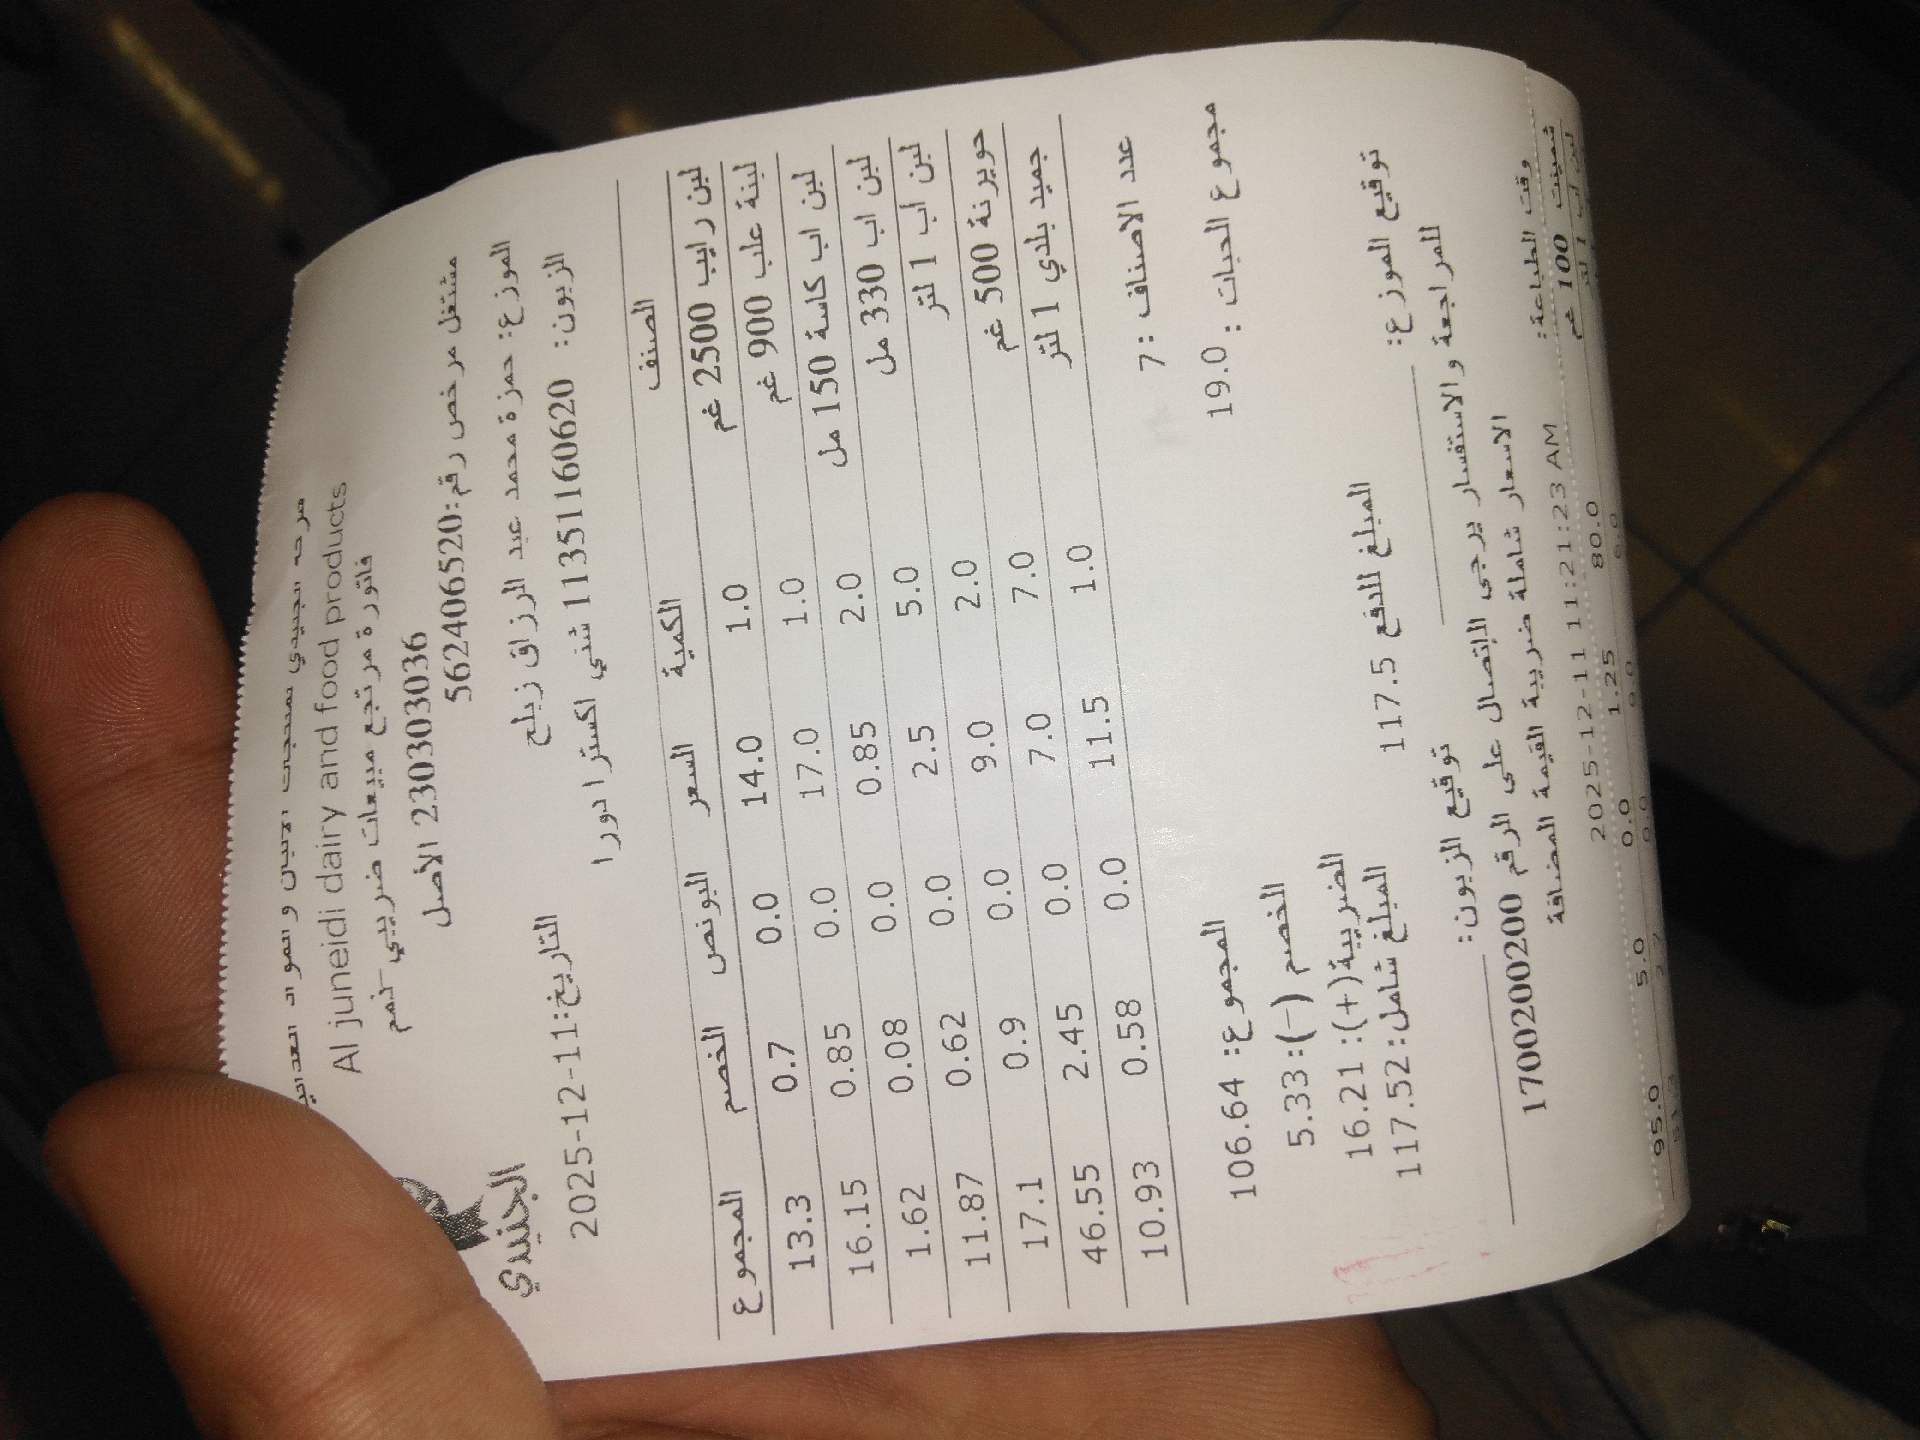 شركة الجنيدي لمنتجات الألبان والمواد الغذائية
Al juneidi dairy and food products
فاتورة مرتجع مبيعات ضريبي -ذمم
230303036 الأصل
مشتغل مرخص رقم:562406520
الجنيدي
الموزع: حمزة محمد عبد الرزاق زبلح
التاريخ:2025-12-11
الزبون: 11351160620 شني اكسترا دورا
الصنف الكمية السعر البونص الخصم المجموع
لبن رايب 2500 غم 1.0 14.0 0.0 0.7 13.3
لبنة علب 900 غم 1.0 17.0 0.0 0.85 16.15
لبن اب كاسة 150 مل 2.0 0.85 0.0 0.08 1.62
لبن اب 330 مل 5.0 2.5 0.0 0.62 11.87
لبن اب 1 لتر 2.0 9.0 0.0 0.9 17.1
حويرنة 500 غم 7.0 7.0 0.0 2.45 46.55
جميد بلدي 1 لتر 1.0 11.5 0.0 0.58 10.93
عدد الاصناف :7
مجموع الحبات : 19.0 المجموع: 106.64
الخصم (-): 5.33
الضريبة(+): 16.21
المبلغ للدفع 117.5 المبلغ شامل: 117.52
توقيع الموزع: توقيع الزبون:
للمراجعة والاستفسار يرجى الإتصال على الرقم 1700200200
الاسعار شاملة ضريبة القيمة المضافة
وقت الطباعة: 2025-12-11 11:21:23 AM
100 غم 80.0 1.25 0.0 5.0 95.0